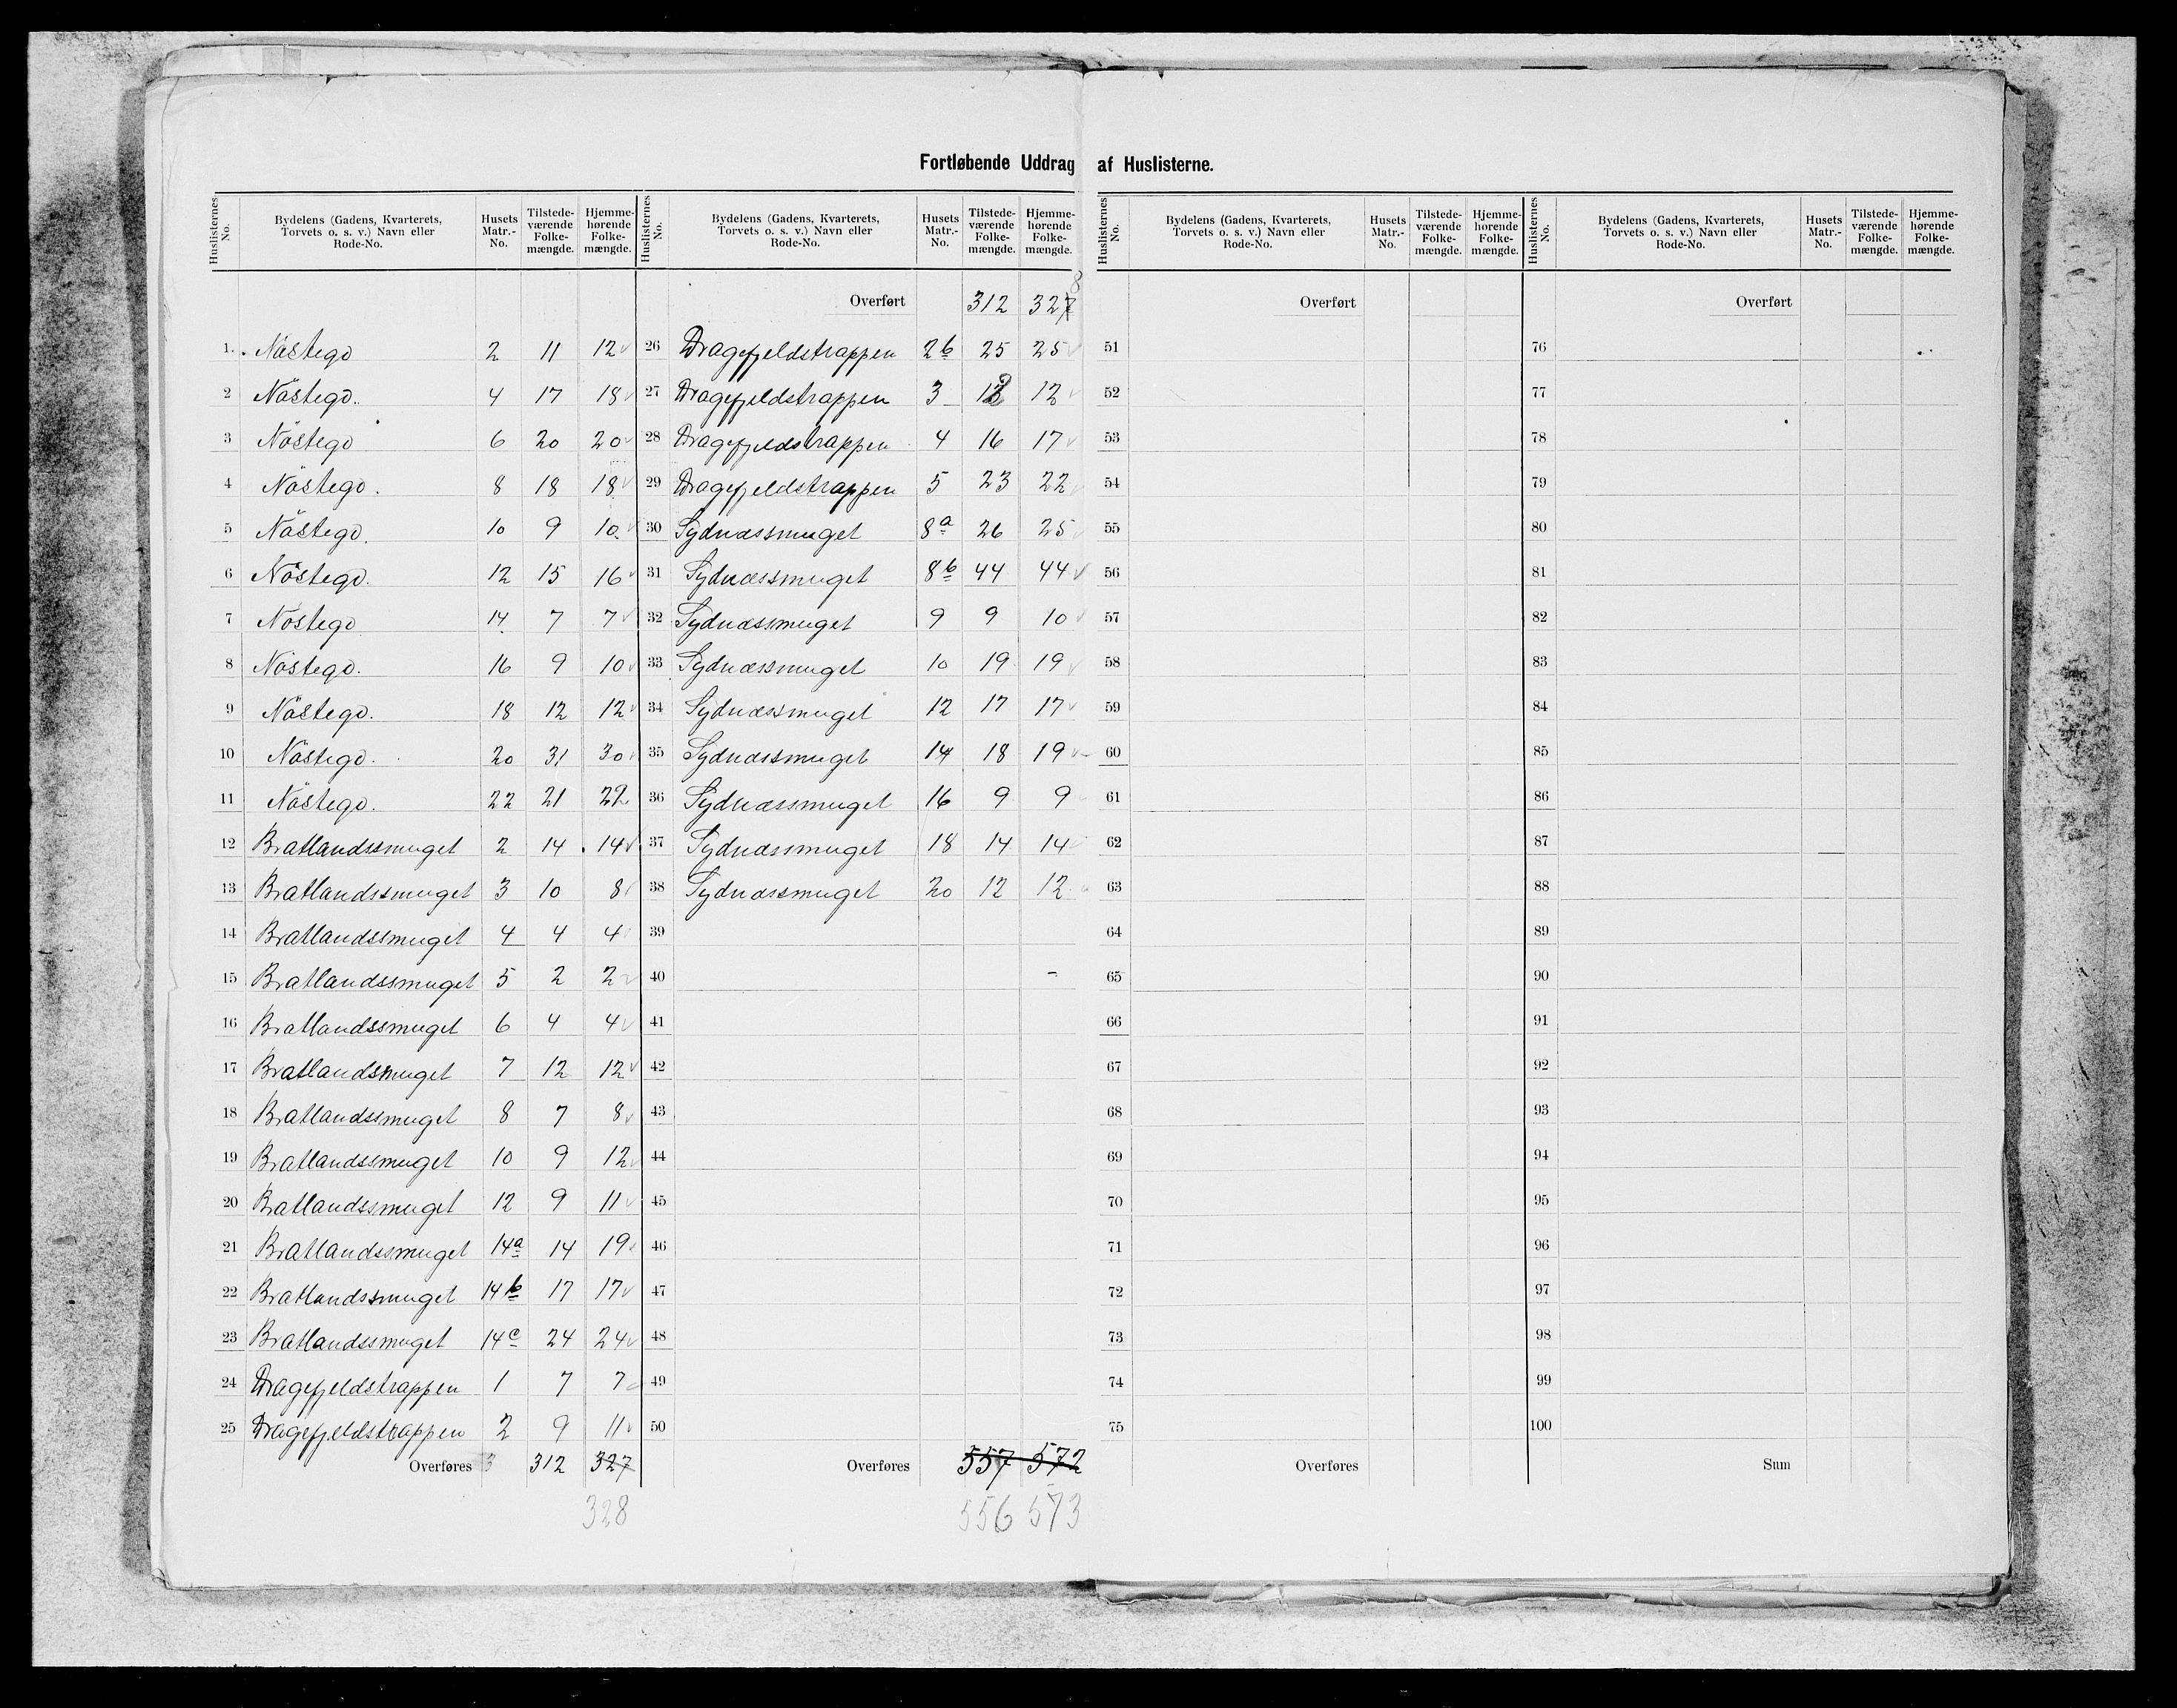 Fortløbende Uddrag af Huslisterne.
Huslisternes No. | Bydelens (Gadens, Kvarterets, Torvets o. s. v.) Navn eller Rode-No. | Husets Matr.-No. | Tilstede-værende Folke-mængde. | Hjemme-hørende Folke-mængde.
1. Nöstegd 2 11 12
2 Nöstegd. 4 17 18
3 Nöstegd 6 20 20
4 Nöstegd. 8 18 18
5 Nöstegd. 10 9 10
6 Nöstegd. 12 15 16
7 Nöstegd 14 7 7
8 Nöstegd. 16 9 10
9 Nöstegd. 18 12 12
10 Nöstegd. 20 31 30
11 Nöstegd. 22 21 22
12 Bratlandssmuget 2 14 14
13 Bratlandssmuget 3 10 8
14 Bratlandssmuget 4 4 4
15 Bratlandssmuget 5 2 2
16 Bratlandssmuget 6 4 4
17 Bratlandsmuget 7 12 12
18 Bratlandssmuget 8 7 8
19 Bratlandssmuget 10 9 12
20 Bratlandssmuget 12 9 11
21 Bratlandssmuget 14a 14 19
22 Bratlandssmuget 14b 17 17
23 Bratlandssmuget 14c 24 24
24 Dragefjeldstrappen 1 7 7
25 Dragefjeldstrappen 2 9 11
Overføres 312 327
328
Huslisternes No. | Bydelens (Gadens, Kvarterets, Torvets o. s. v.) Navn eller Rode-No. | Husets Matr.-No. | Tilstede-værende Folke-mængde. | Hjemme-hørende Folke-mængde.
8
Overført 312 327
26 Dragefjeldstrappen 2b 25 25
27 Dragefjeldstrappen 3 12 12
28 Dragefjeldstrappen 4 16 17
29 Dragefjeldstrappen 5 23 22
30 Sydnæssmuget 8a 26 25
31 Sydnæssmuget 8b 44 44
32 Sydnæssmuget 9 9 10
33 Sydnæssmuget 10 19 19
34 Sydnæssmuget 12 17 17
35 Sydnæssmuget 14 18 19
36 Sydnæssmuget 16 9 9
37 Sydnæssmuget 18 14 14
38 Sydnæssmuget 20 12 12
39
40
41
42
43
44
45
46
47
48
49
50
Overføres 557 572
556 573
Huslisternes No. | Bydelens (Gadens, Kvarterets, Torvets o. s. v.) Navn eller Rode-No. | Husets Matr.-No. | Tilstede-værende Folke-mængde. | Hjemme-hørende Folke-mængde.
Overført
51
52
53
54
55
56
57
58
59
60
61
62
63
64
65
66
67
68
69
70
71
72
73
74
75
Overføres
Huslisternes No. | Bydelens (Gadens, Kvarterets, Torvets o. s. v.) Navn eller Rode-No. | Husets Matr.-No. | Tilstede-værende Folke-mængde. | Hjemme-hørende Folke-mængde.
Overført
76
77
78
79
80
81
82
83
84
85
86
87
88
89
90
91
92
93
94
95
96
97
98
99
100
Sum